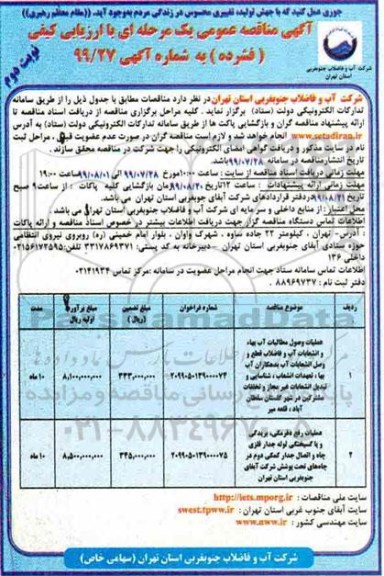 جوری عمل کنید که با جهش تولید، تغییری محسوس در زندگی مردم به‌وجود آید. ((مقام معظم رهبری))
آگهی مناقصه عمومی یک مرحله ای با ارزیابی کیفی
( فشرده ) به شماره آگهی ۹۹/۲۷
نوبت دوم
شرکت آب و فاضلاب جنوبغربی
استان تهران
شرکت آب و فاضلاب جنوبغربی استان تهران در نظر دارد مناقصات مطابق با جدول ذیل را از طریق سامانه
تدارکات الکترونیکی دولت (ستاد) برگزار نماید . کلیه مراحل برگزاری مناقصه از دریافت اسناد مناقصه تا
ارائه پیشنهاد مناقصه گران و بازگشایی پاکت ها از طریق سامانه تدارکات الکترونیکی دولت (ستاد) به آدرس
www.setadiran.ir انجام خواهد شد و لازم است مناقصه گران در صورت عدم عضویت قبلی ، مراحل ثبت
نام در سایت مذکور و دریافت گواهی امضای الکترونیکی را جهت شرکت در مناقصه محقق سازند .
تاریخ انتشار مناقصه در سامانه ۹۹/۰۷/۲۸ می باشد.
مهلت زمانی دریافت اسناد مناقصه از سایت : ساعت ۱۰:۰۰ مورخ ۹۹/۰۷/۲۸ الی ۹۹/۰۸/۰۱ ساعت ۱۹:۰۰
مهلت زمانی ارائه پیشنهادات : ساعت ۱۲ تاریخ ۹۹/۰۸/۲۰ زمان بازگشایی کلیه پاکات : از ساعت ۹ صبح
تاریخ ۹۹/۰۸/۲۱ در دفتر قراردادهای شرکت آبفای جنوبغربی استان تهران می باشد.
محل اعتبار : از منابع داخلی و سرمایه ای شرکت آب و فاضلاب جنوبغربی استان تهران می باشد.
اطلاعات تماس دستگاه مناقصه گزار جهت دریافت اطلاعات بیشتر در خصوص اسناد مناقصه و ارائه پاکات
: آدرس - تهران ، کیلومتر ۲۲ جاده ساوه ، شهرک واوان ، بلوار امام خمینی (ره) روبروی نیروی انتظامی
حوزه ستادی آبفای جنوبغربی استان تهران . دبیرخانه به کد پستی: ۳۳۱۷۸۶۹۳۷۱ تلفن: ۰۲۱۵۶۱۷۲۵۹۵
داخلی ۱۳۶
اطلاعات تماس سامانه ستاد جهت انجام مراحل عضویت در سامانه :مرکز تماس ۰۲۱۴۱۹۳۴
دفتر ثبت نام : ۸۸۹۶۹۷۳۷ .
ردیف موضوع مناقصه شماره فراخوان مبلغ تضمین (ریال ) مبلغ برآورد اولیه ریال مدت
۱ عملیات وصول مطالبات آب بهاء و انشعابات آب و فاضلاب قطع و وصل انشعابات آب بدهکاران آب بها ، تعهدات انشعاب ، شناسایی و تبدیل انشعابات غیر مجاز و تخلفات مشترکین در شهر گلستان سلطان آباد ، قلعه میر ۲۰۹۹۰۵۰۱۳۹۰۰۰۰۷۴ ۳۳۳,۰۰۰,۰۰۰ ۸,۱۰۰,۰۰۰,۰۰۰ ۱۰ ماه
۲ عملیات رفع دفرمگی، بریدگی و یا گسیختگی لوله جدار فلزی چاه و اتصال جدار کمکی دوم در چاه‌های تحت پوشش شرکت آبفای جنوبغربی استان تهران ۲۰۹۹۰۵۰۱۳۹۰۰۰۰۷۵ ۳۴۵,۰۰۰,۰۰۰ ۸,۵۰۰,۰۰۰,۰۰۰ ۱۰ ماه
سایت ملی مناقصات : http://iets.mporg.ir
سایت آبفای جنوب غربی استان تهران : swest.tpww.ir
سایت مهندسی کشور : www.nww.ir
شرکت آب و فاضلاب جنوبغربی استان تهران (سهامی خاص)